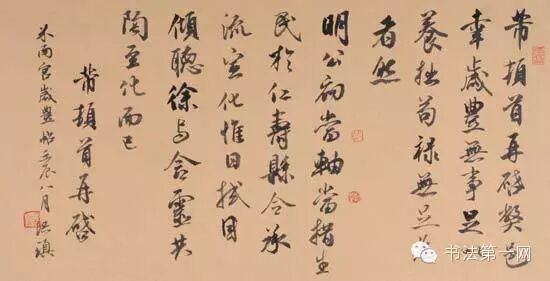 芾頓首再啓弊邑
幸歲豐無事足以
養拙苟禄無足道
者然
明公初當軸當措生
民於仁壽縣令承
流宣化惟日拭目
傾聽徐與含靈共
陶至化而已
芾頓首再啓
米南宮歲豐帖壬辰八月
书法第一网